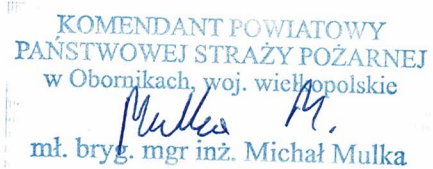 KOMENDANT POWIATOWY
PAŃSTWOWEJ STRAŻY POŻARNEJ
w Obornikach, woj. wielkopolskie
Mulka M.
mł. bryg. mgr inż. Michał Mulka